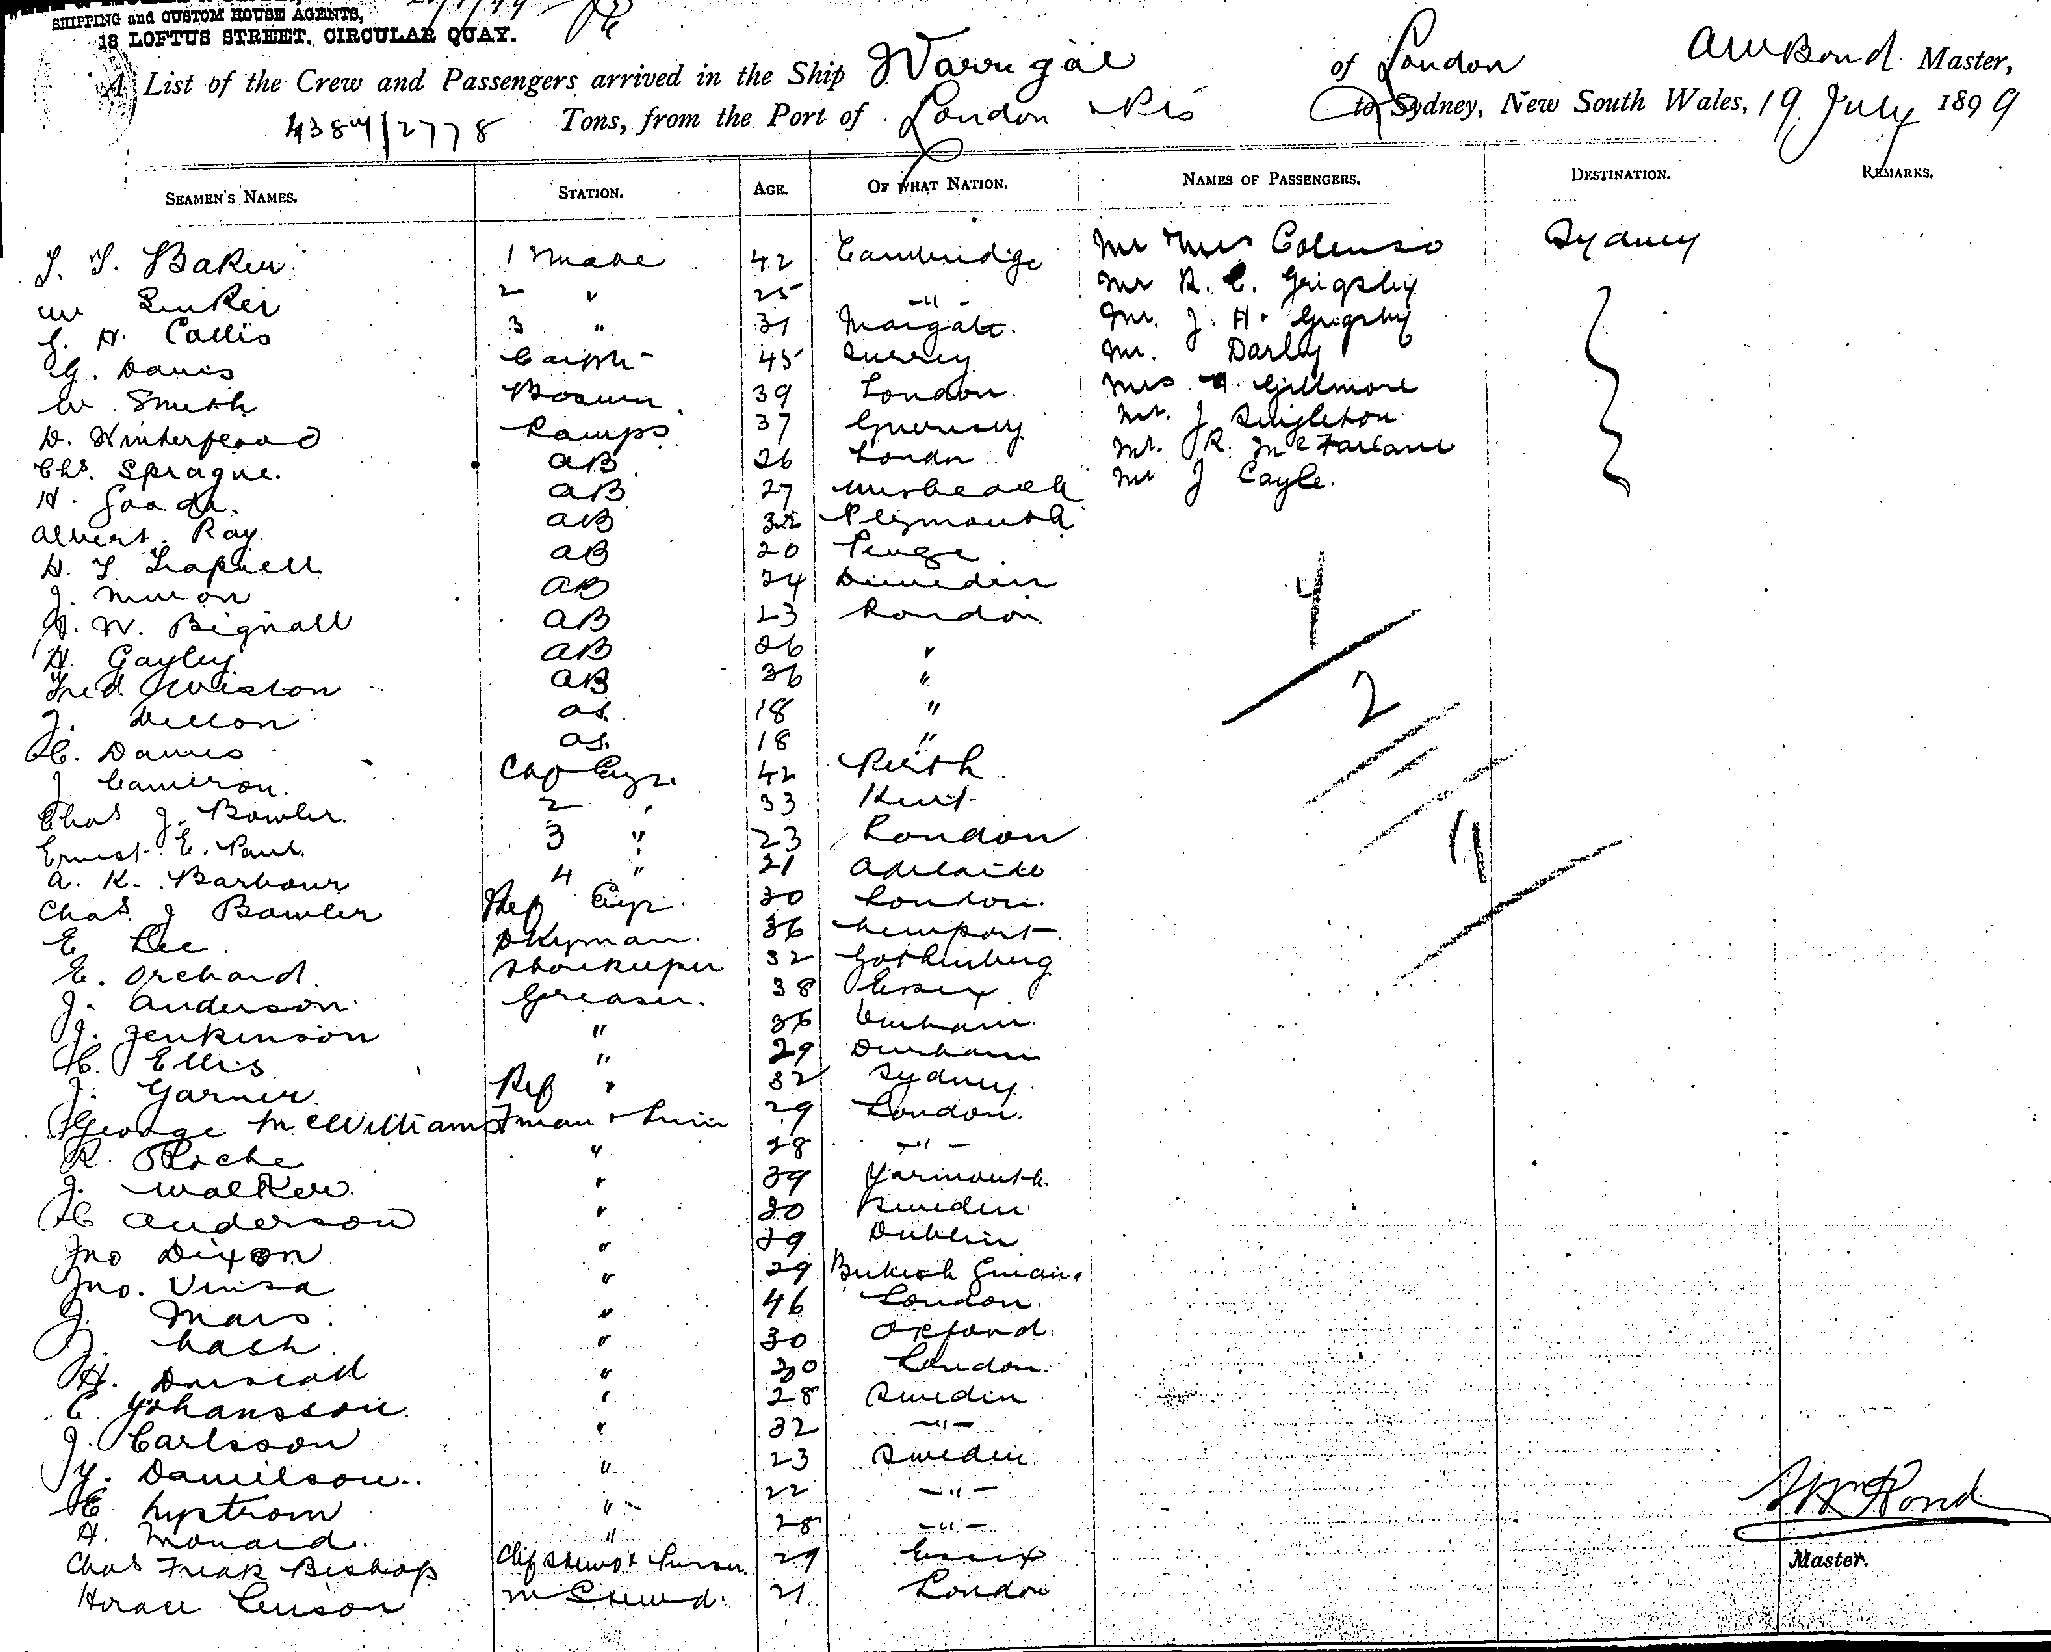 SHIPPING and CUSTOM HOUSE AGENTS,
18 LOFTUS STREET, CIRCULAR QUAY.
A List of the Crew and Passengers arrived in the Ship Warrigal of London AWBond Master,
Tons, from the Port of London to Sydney, New South Wales, 19 July 1899
SEAMEN'S NAMES. STATION. AGE. OF WHAT NATION. NAMES OF PASSENGERS. DESTINATION. REMARKS.
Baker 1 Mate 42 Cambridge Mr Mrs Colenso Sydney
2 " 25 -"- Mr R. C. Grigsby
G. H. Collis 3 " 31 Margate. Mr. J. H. Grigsby
G. Davis 45 Surrey Mr. Darley
W. Smith Bosun. 39 London Mrs Gillmore
D. Winterflood Lamps 37 Guernsey Mr. J Singleton
Chs. Sprague. AB 26 London Mr. R. McFarlane
AB 27 Mr J Cayle.
Albert Ray AB Plymouth
AB 20 Penge
AB 24 Dunedin
W. Bignall AB 23 London 4
H. Gayley AB 26 "
Fred AB 36 "
J. Dillon 18 " 2
C. Davies 18 "
J Cameron. 42 Perth
Chas J. Bowler. 2 " 33 Kent
Ernest E. Paul 3 " 23 London
A. K. Barbour 4 " 21 Adelaide 11
Chas. J Bowler Ref Engr. 30 London.
E Lee Dkyman. 36 Newport
E. Orchard. Storekeeper 32 Gothenburg
J. Anderson Greaser. 38 Essex
J. Jenkinson " 36
C. Ellis " 29 Durham
J. Garner Ref " 32 Sydney
George McWilliams 29 London.
R. Roche " 28 -"-
J. Walker. " 39 Yarmouth.
C Anderson " 30 Sweden
Jno Dixon " 39 Dublin
Jno. Vinsa " 29 British Guiana
J. Mars. " 46 London.
Nash. " 30 Oxford.
H. Driscoll " 30 London.
C. Johansson. " 28 Sweden
J. Carlsson " 32 -"-
Y. Danielson. " 23 Sweden
C. Nystrom " 22 -"-
H. Monard. " 28 -"-
Chas Freak Bishop 29 Essex
Horace 21 London
Master.